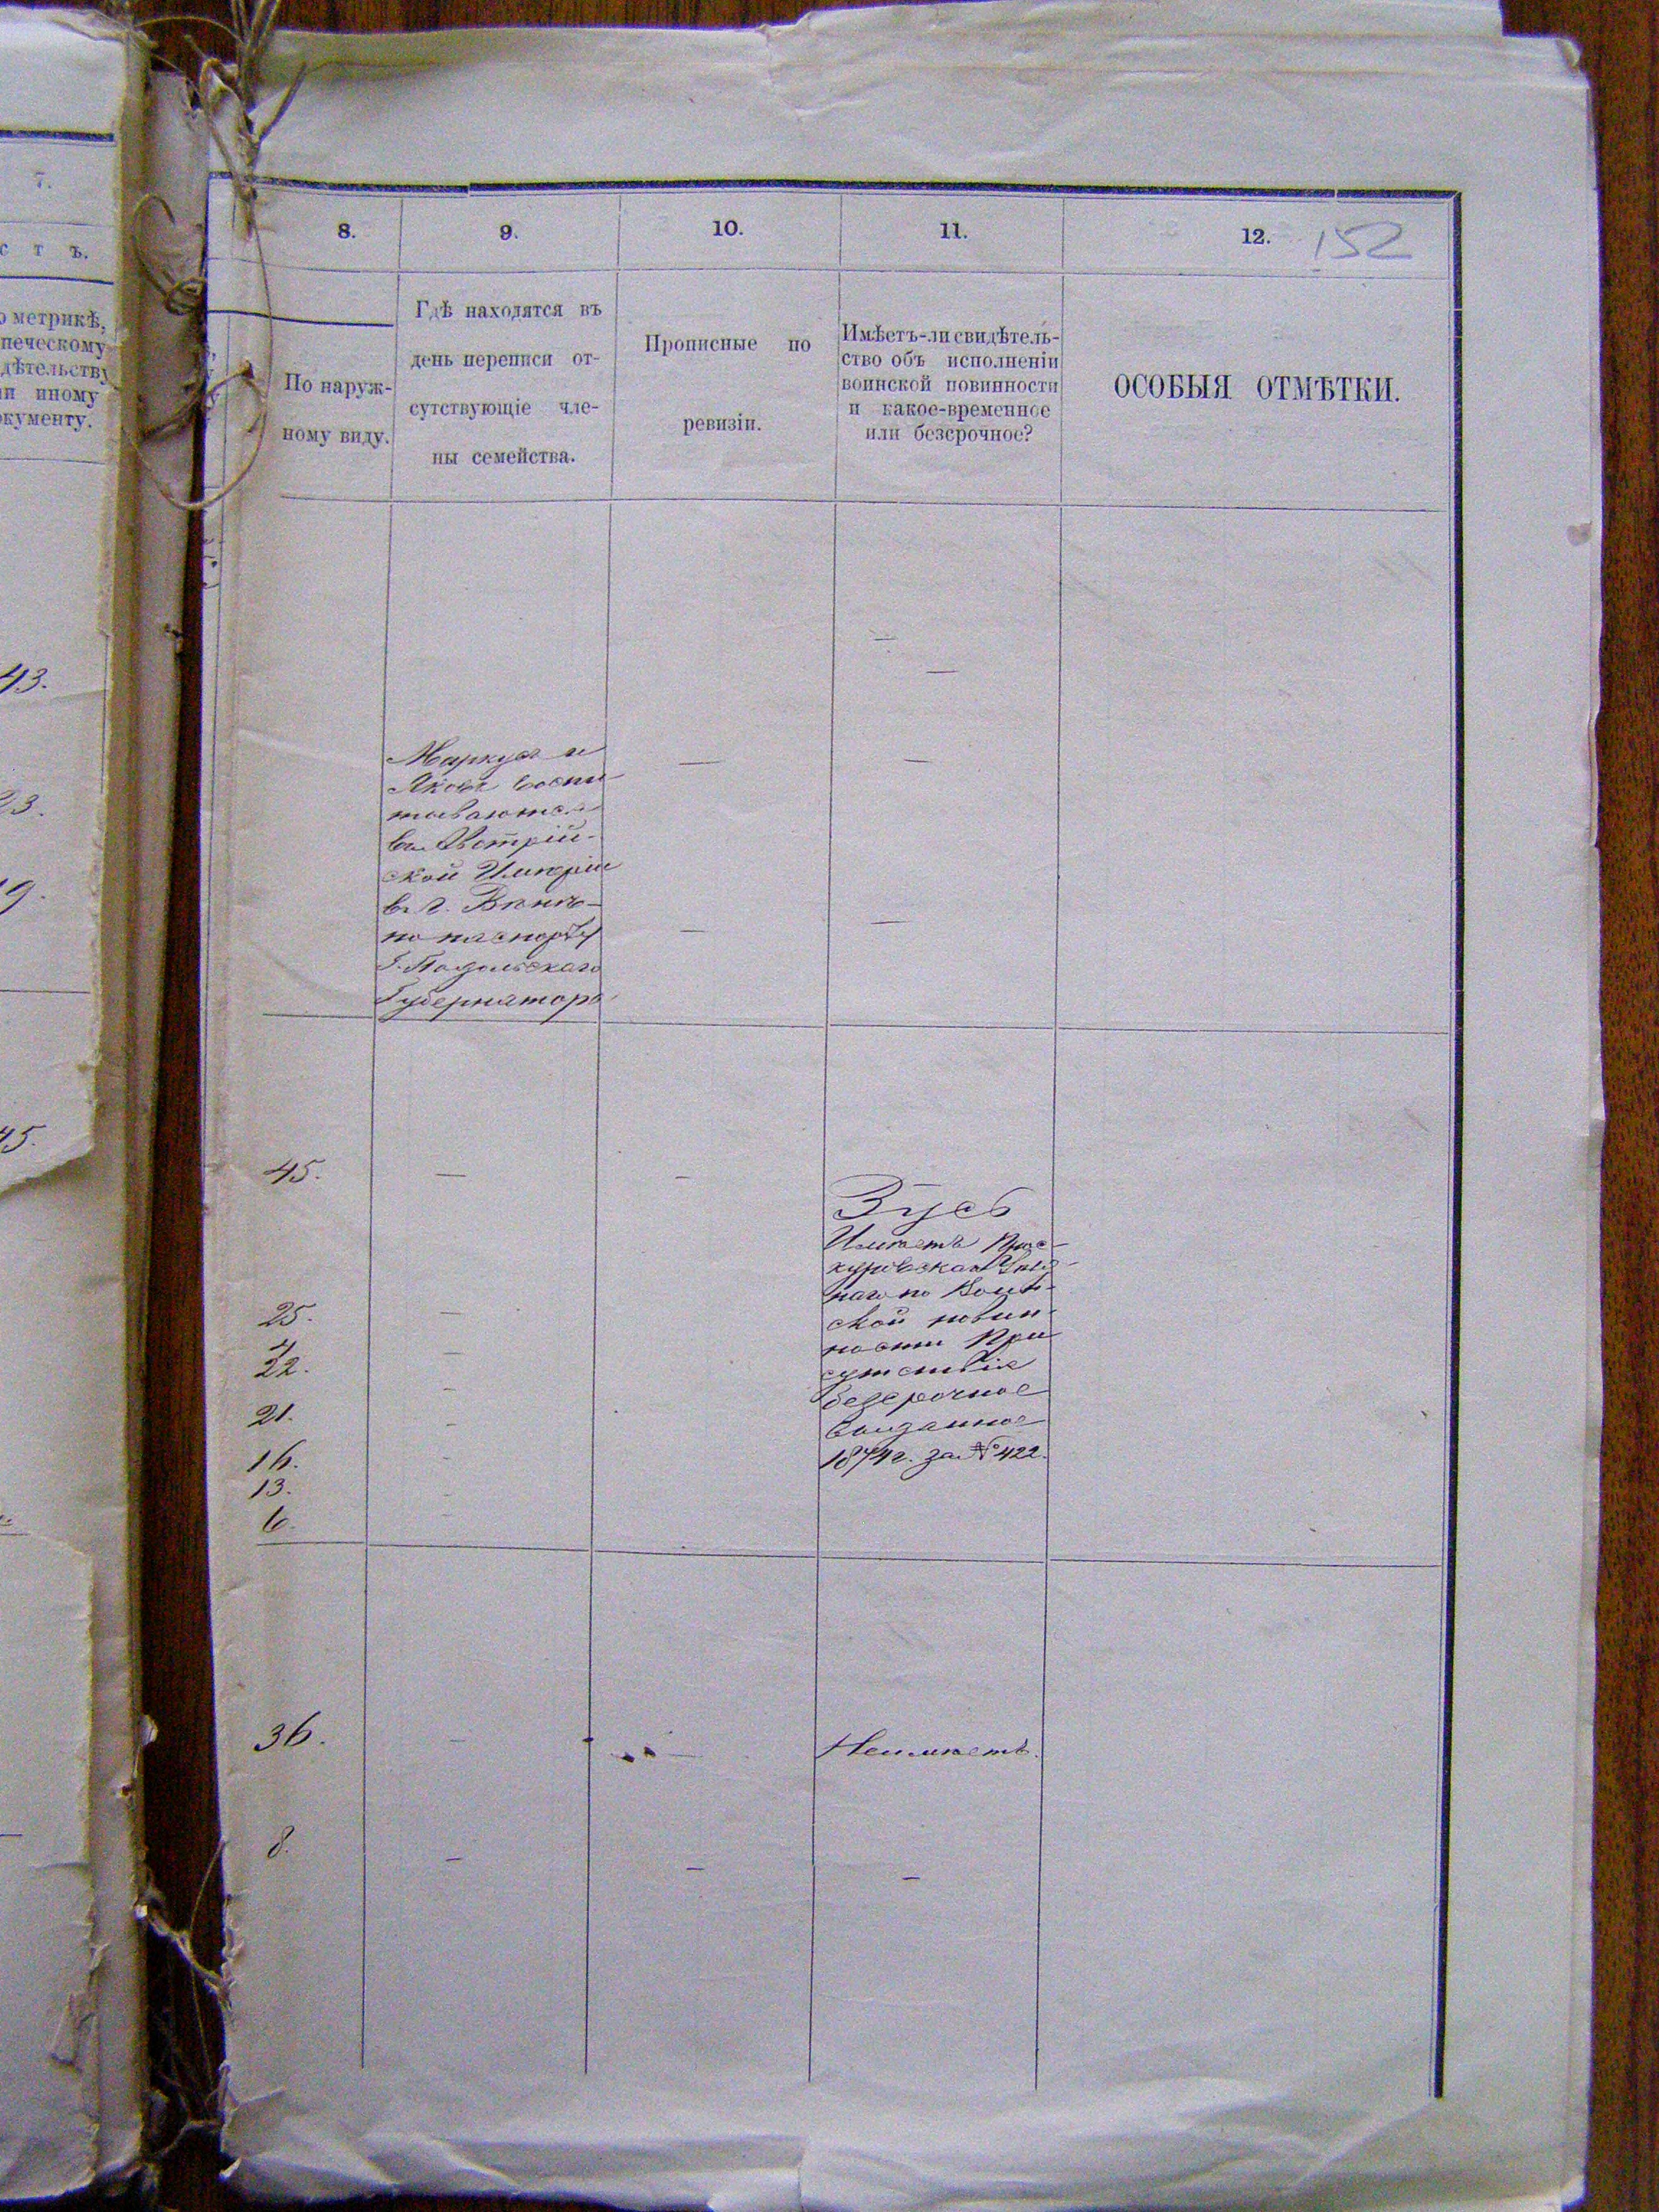 7.
с т ъ.
о метрикѣ,
печескому
дѣтельству
ли иному
окументу.
43.
23.
9.
45.
8.
9.
10.
11.
12.
152
По наруж-
ному виду.
Гдѣ находятся въ
день переписи от-
сутствующіе чле-
ны семейства.
Прописные по
ревизіи.
Имѣетъ-ли свидѣтель-
ство объ исполненіи
воинской повинности
и какое-временное
или безсрочное?
ОСОБЫЯ ОТМѢТКИ.
Маркусъ и
Яковъ воспи
тываются
въ Австрій-
ской Имперіи
въ г. Вѣнѣ-
по паспорту
Г. Подольскаго
Губернатора
45.
25.
22.
21.
16.
13.
6.
Зусь
Имѣетъ Прос-
куровскаго Уѣзд-
наго по Воин-
ской повин-
ности При
сутствія
безсрочное
выданное
1874 г. за № 422.
36.
Неимѣетъ.
8.